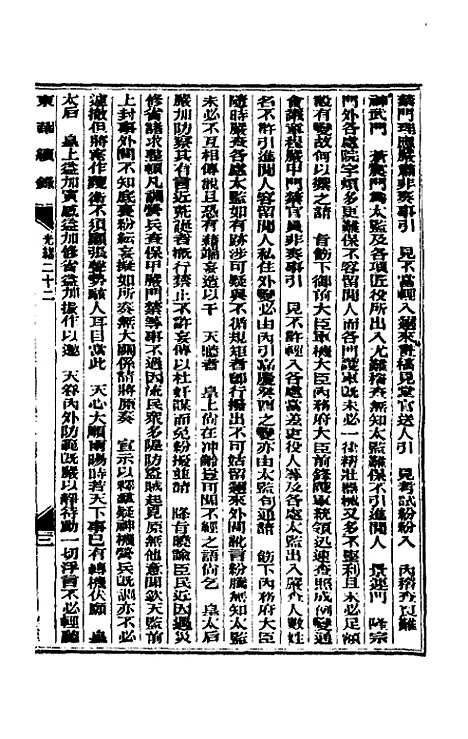 禁門理應嚴肅非奏事引　見不當輕入邇來
見考試紛紛入　內稽查良難
神武門　黃　門為太監及各項近役所出入尤難稽查無知太監難保不引進閒人　景運門　隆宗
門外各處院字煩多更難保不容留閒人而各門護軍既未必一律精壯器械又多不堅利且未必足額
設有變故何以禦之請　旨飭下御前大臣軍機大臣內務府大臣前鋒護軍統領迅速查照成例變通
會議章程嚴申門禁官員非奏事引　見不許輕入各處當差吏役人等及各處太監出入嚴查人數姓
名不許引進閒人容留閒人私住外變必由內引嘉慶癸酉之變亦由太監勾通請　飭下內務府大臣
隨時嚴查各處太監如有跡涉可疑與不循規矩者即行攆出不可姑留邇來外間訛言紛騰無知太監
未必不互相傳說且恐有藉端妄造以干　天聽者　皇上尚在沖齡豈可聞不經之語尚乞　皇太后
嚴加防察其有言近荒誕者概行禁止不許妄傳以杜奸謀而免紛擾並請　降旨曉諭臣民近因遇災
修省諸求整頓凡調營兵查保甲嚴門禁等事不過因流民眾多隄防盜賊起見原無他意聞欽天監前
上封事外間不知底裏紛紜妄擬如所奏無大關係請將原奏　宣示以釋羣疑神機營兵既調亦不必
遽撤但將寓作護衛不須顯張聲勢駭人耳目當此　天心大順雨暘時若天下事已有轉機伏願　皇
太后　皇上益加寅感益加修省益加振作以迓　天眷內外防範既嚴以靜待動一切浮言不必輕聽
東華續錄
光緒二十二
三